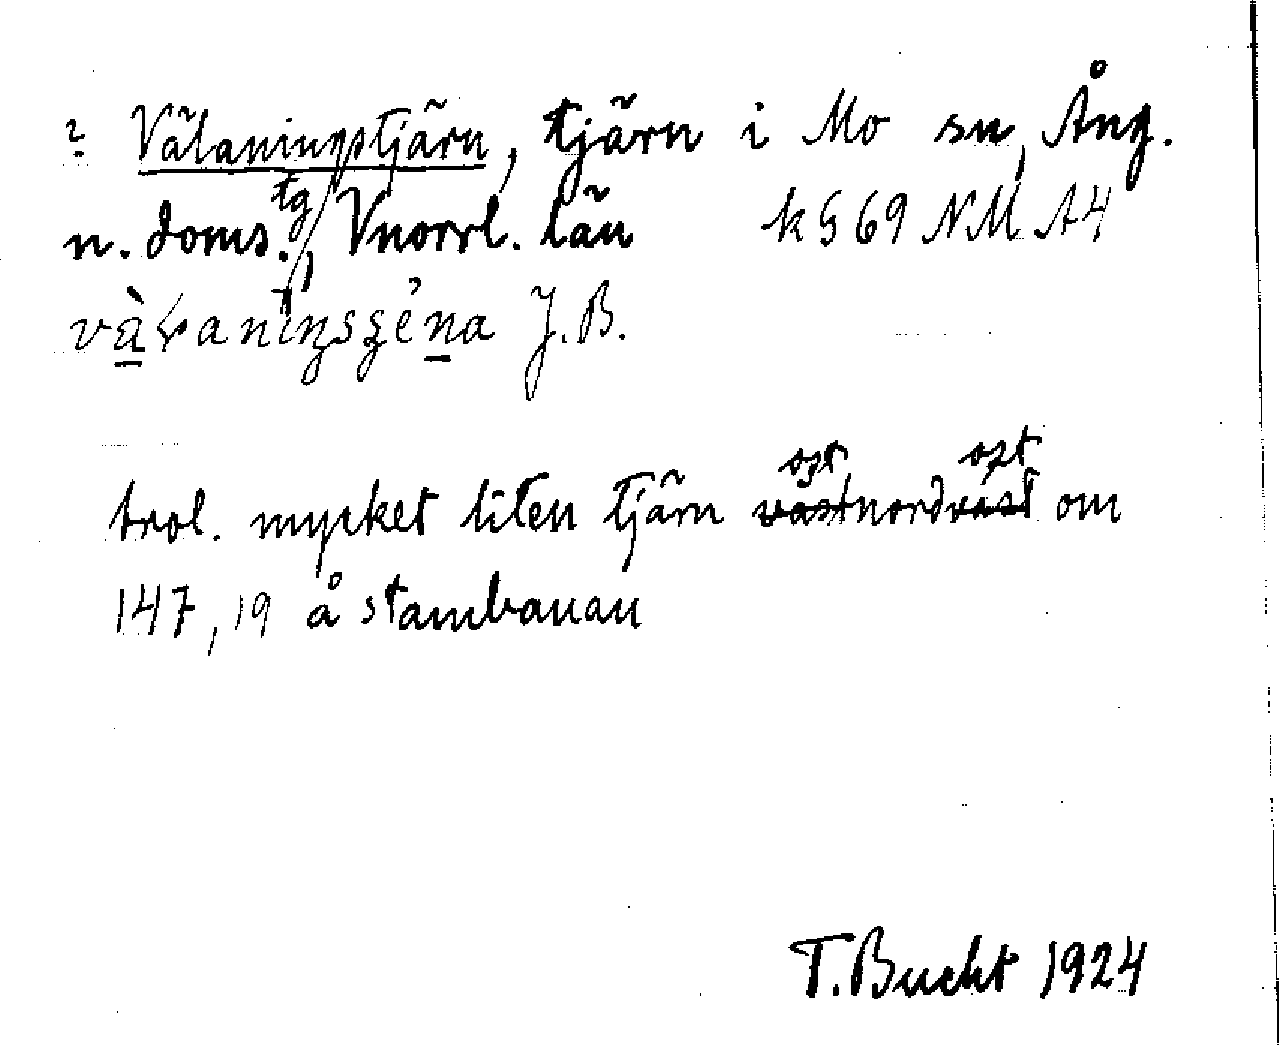 ? Välaningstjärn, tjärn i Mo sn, Ång.
n. doms.tg, Vnorrl. län k G 69 NM A4
J. B.
trol. mycket liten tjärn ostnordost om
147,19 å stambanan
T. Bucht 1924